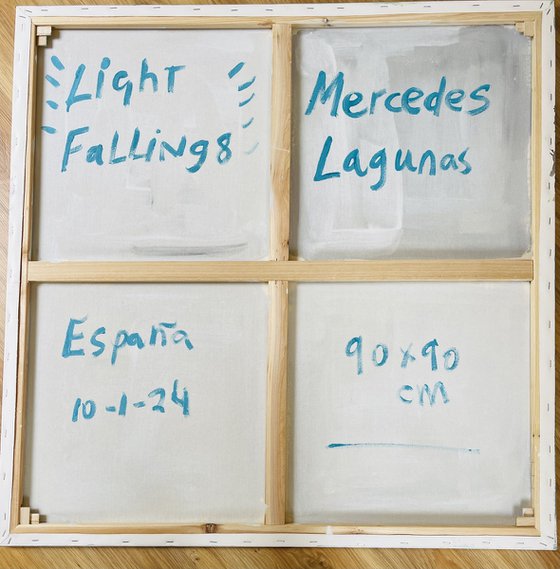 Light
Falling8
Mercedes
Lagunas
España
10-1-24
90x90
cm